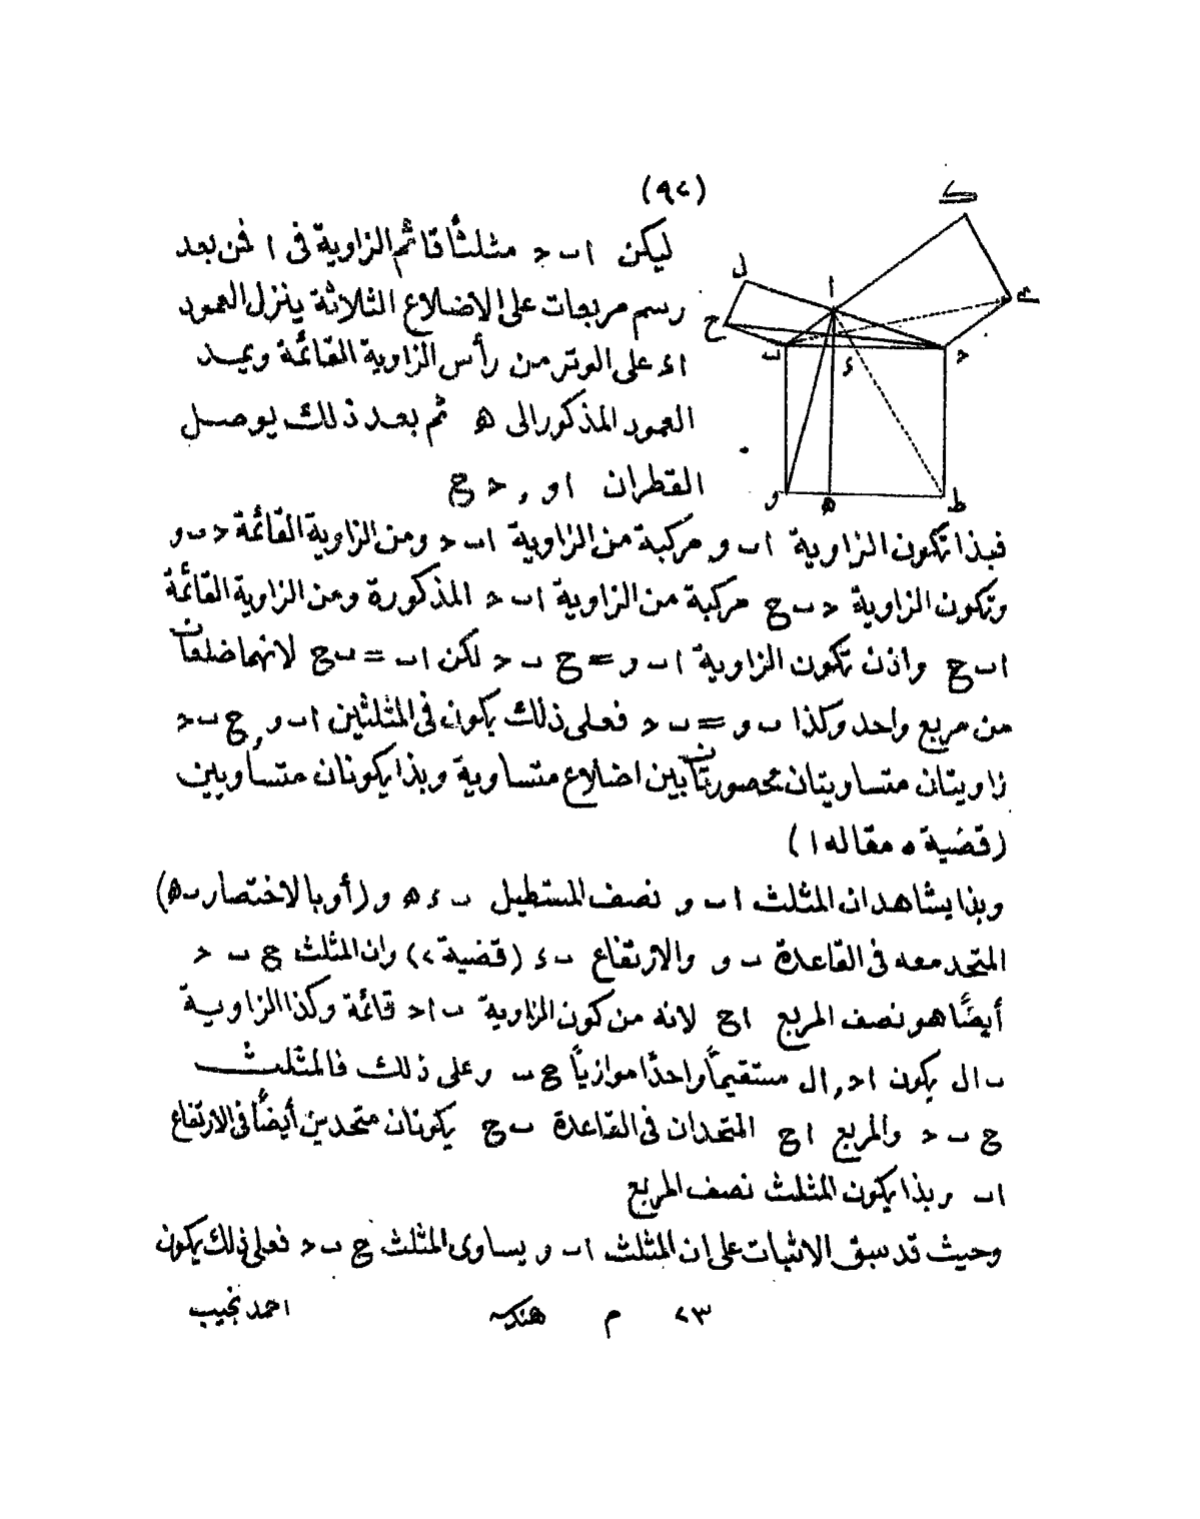 (٩٢)
ليكن ا ب ح مثلثًا قائم الزاوية فى ا فمن بعد
رسم مربعات على الاضلاع الثلاثة ينزل العمود
ا ء على الوتر من رأس الزاوية القائمة ويمد
العمود المذكور الى ه ثم بعد ذلك يوصل
القطران ا و , ح ج
فبذا تكون الزاوية ا ب و مركبة من الزاوية ا ب ح ومن الزاوية القائمة ح ب و
وتكون الزاوية ح ب ج مركبة من الزاوية ا ب ح المذكورة ومن الزاوية القائمة
ا ب ج واذن تكون الزاوية ا ب و = ج ب ح لكن ا ب = ب ج لانهما ضلعان
من مربع واحد وكذا ب و = ب ح فعلى ذلك يكون فى المثلثين ا ب و , ج ب ح
زاويتان متساويتان محصورتان بين اضلاع متساوية وبذا يكونان متساويين
(قضية ٥ مقاله ١)
وبذا يشاهد ان المثلث ا ب و نصف المستطيل ب ء ه و (أو بالاختصار ب ه)
المتحد معه فى القاعدة ب و والارتفاع ب ء (قضية ٢) وان المثلث ج ب ح
أيضًا هو نصف المربع ا ج لانه من كون الزاوية ب ا ح قائمة وكذا الزاوية
ب ا ل يكون ا ح , ا ل مستقيمًا واحدًا موازيًا ج ب وعلى ذلك فالمثلث
ج ب ح والمربع ا ج المتحدان فى القاعدة ب ج يكونان متحدين أيضًا فى الارتفاع
ا ب وبذا يكون المثلث نصف المربع
وحيث قد سبق الاثبات على ان المثلث ا ب و يساوى المثلث ج ب ح فعلى ذلك يكون
٢٣ م هندسه احمد نجيب
ك
ل
ا
ى
ج
ب
ء
ح
و
ه
ط